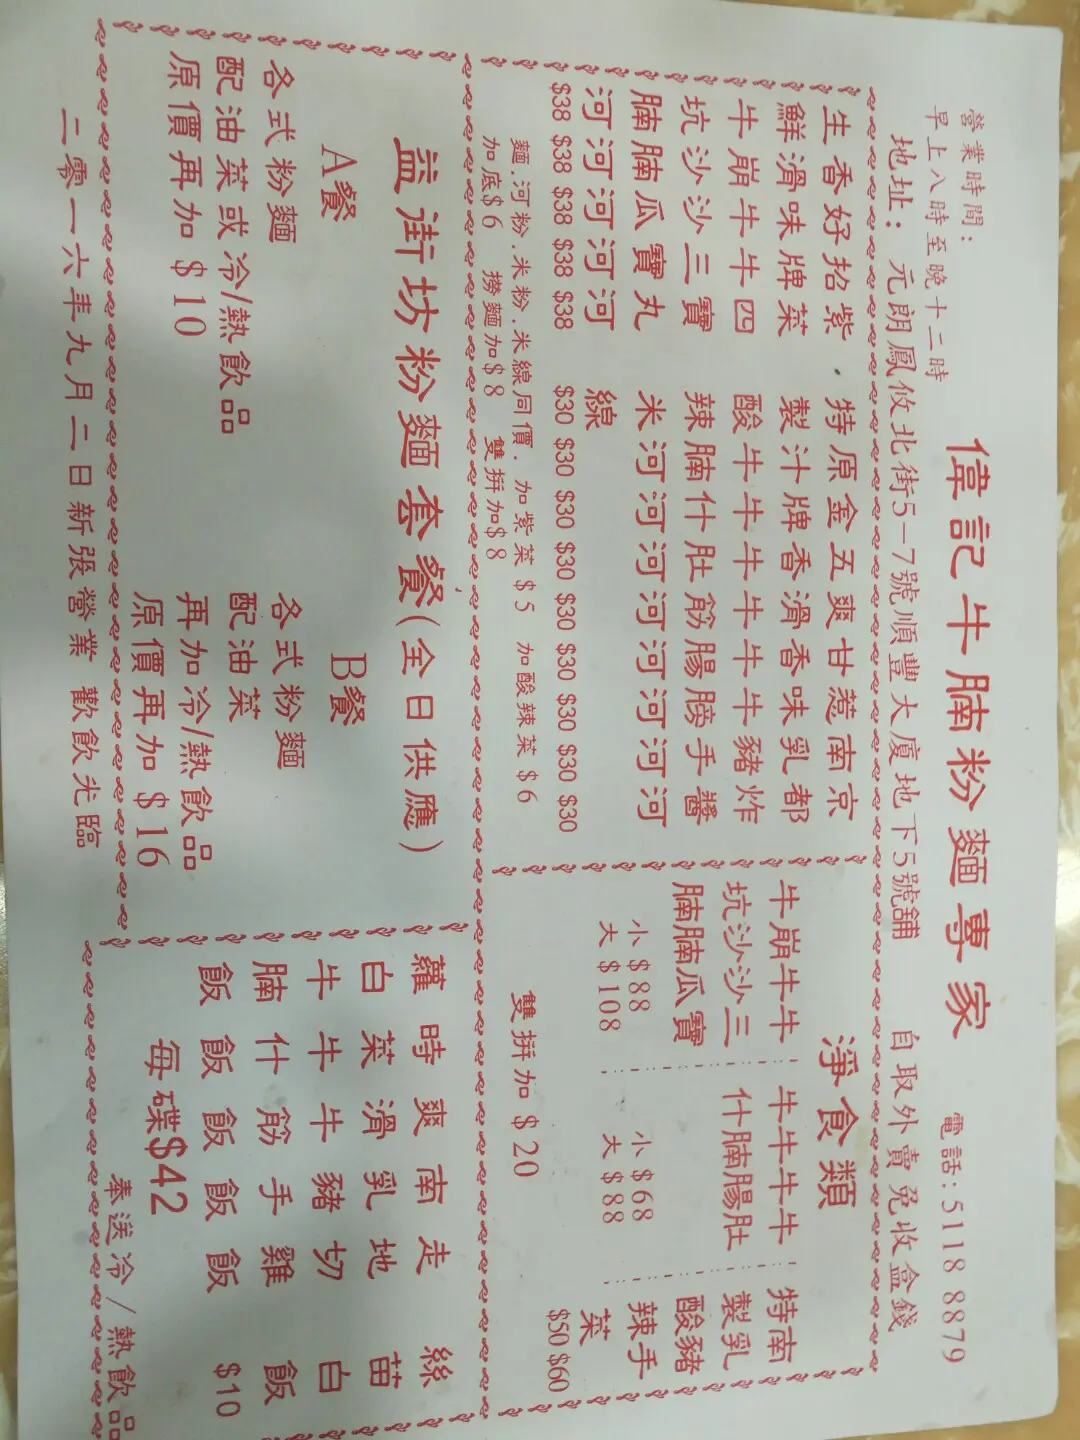 偉記牛腩粉麵專家
電話: 5118 8879
營業時間：
早上八時至晚十二時
地址：元朗鳳攸北街5-7號順豐大廈地下5號舖
自取外賣免收盒錢
生鮮牛坑腩河 $38
香滑崩沙腩河 $38
好味牛沙瓜河 $38
招牌牛三寶河 $38
紫菜四寶丸河 $38
特製酸辣米線 $30
原汁牛腩河 $30
金牌牛什河 $30
五香牛肚河 $30
爽滑牛筋河 $30
甘香牛腸河 $30
惹味牛膀河 $30
南乳豬手河 $30
京都炸醬河 $30
麵.河粉.米粉.米線同價. 加紫菜$5 加酸辣菜$6
加底$6 撈麵加$8 雙拼加$8
淨食類
牛坑腩
崩沙腩
牛沙瓜
牛三寶
小$88
大$108
牛什
牛腩
牛腸
牛肚
小$68
大$88
特製酸辣菜 $50
南乳豬手 $60
雙拼加$20
益街坊粉麵套餐(全日供應)
A餐
各式粉麵
配油菜或冷/熱飲品
原價再加$10
B餐
各式粉麵
配油菜
再加冷/熱飲品
原價再加$16
蘿白牛腩飯
時菜牛什飯
爽滑牛筋飯
南乳豬手飯
走地切雞飯
每碟$42
絲苗白飯 $10
奉送冷/熱飲品
二零一六年九月二日新張營業 歡飲光臨